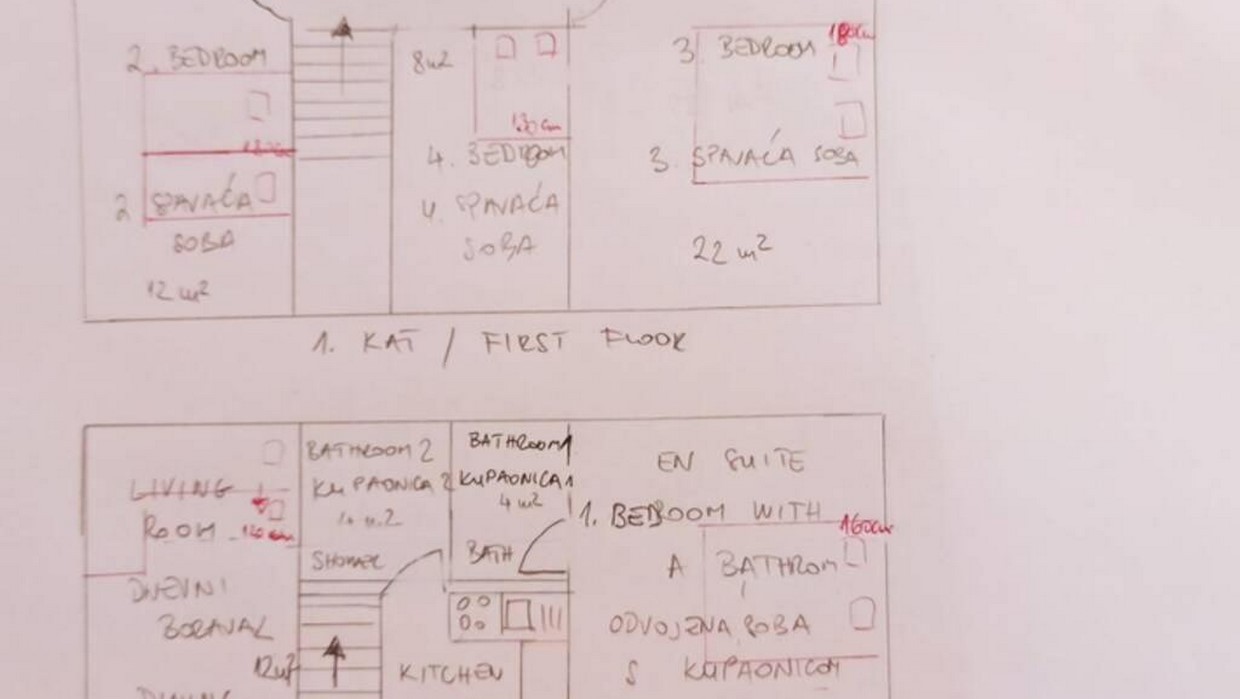 2. BEDROOM
2 SPAVAĆA
SOBA
12 m2
8m2
130cm
4. BEDROOM
4. SPAVAĆA
SOBA
3 BEDROOM 180cm
3. SPAVAĆA SOBA
22 m2
1. KAT / FIRST FLOOR
LIVING
ROOM
DNEVNI
BORAVAK
12m2
BATHROOM 2
KUPAONICA 2
SHOWER
BATHROOM 1
KUPAONICA 1
4 m2
BATH
KITCHEN
EN SUITE
1. BEDROOM WITH
160cm
A BATHROM
ODVOJENA SOBA
S KUPAONICOM